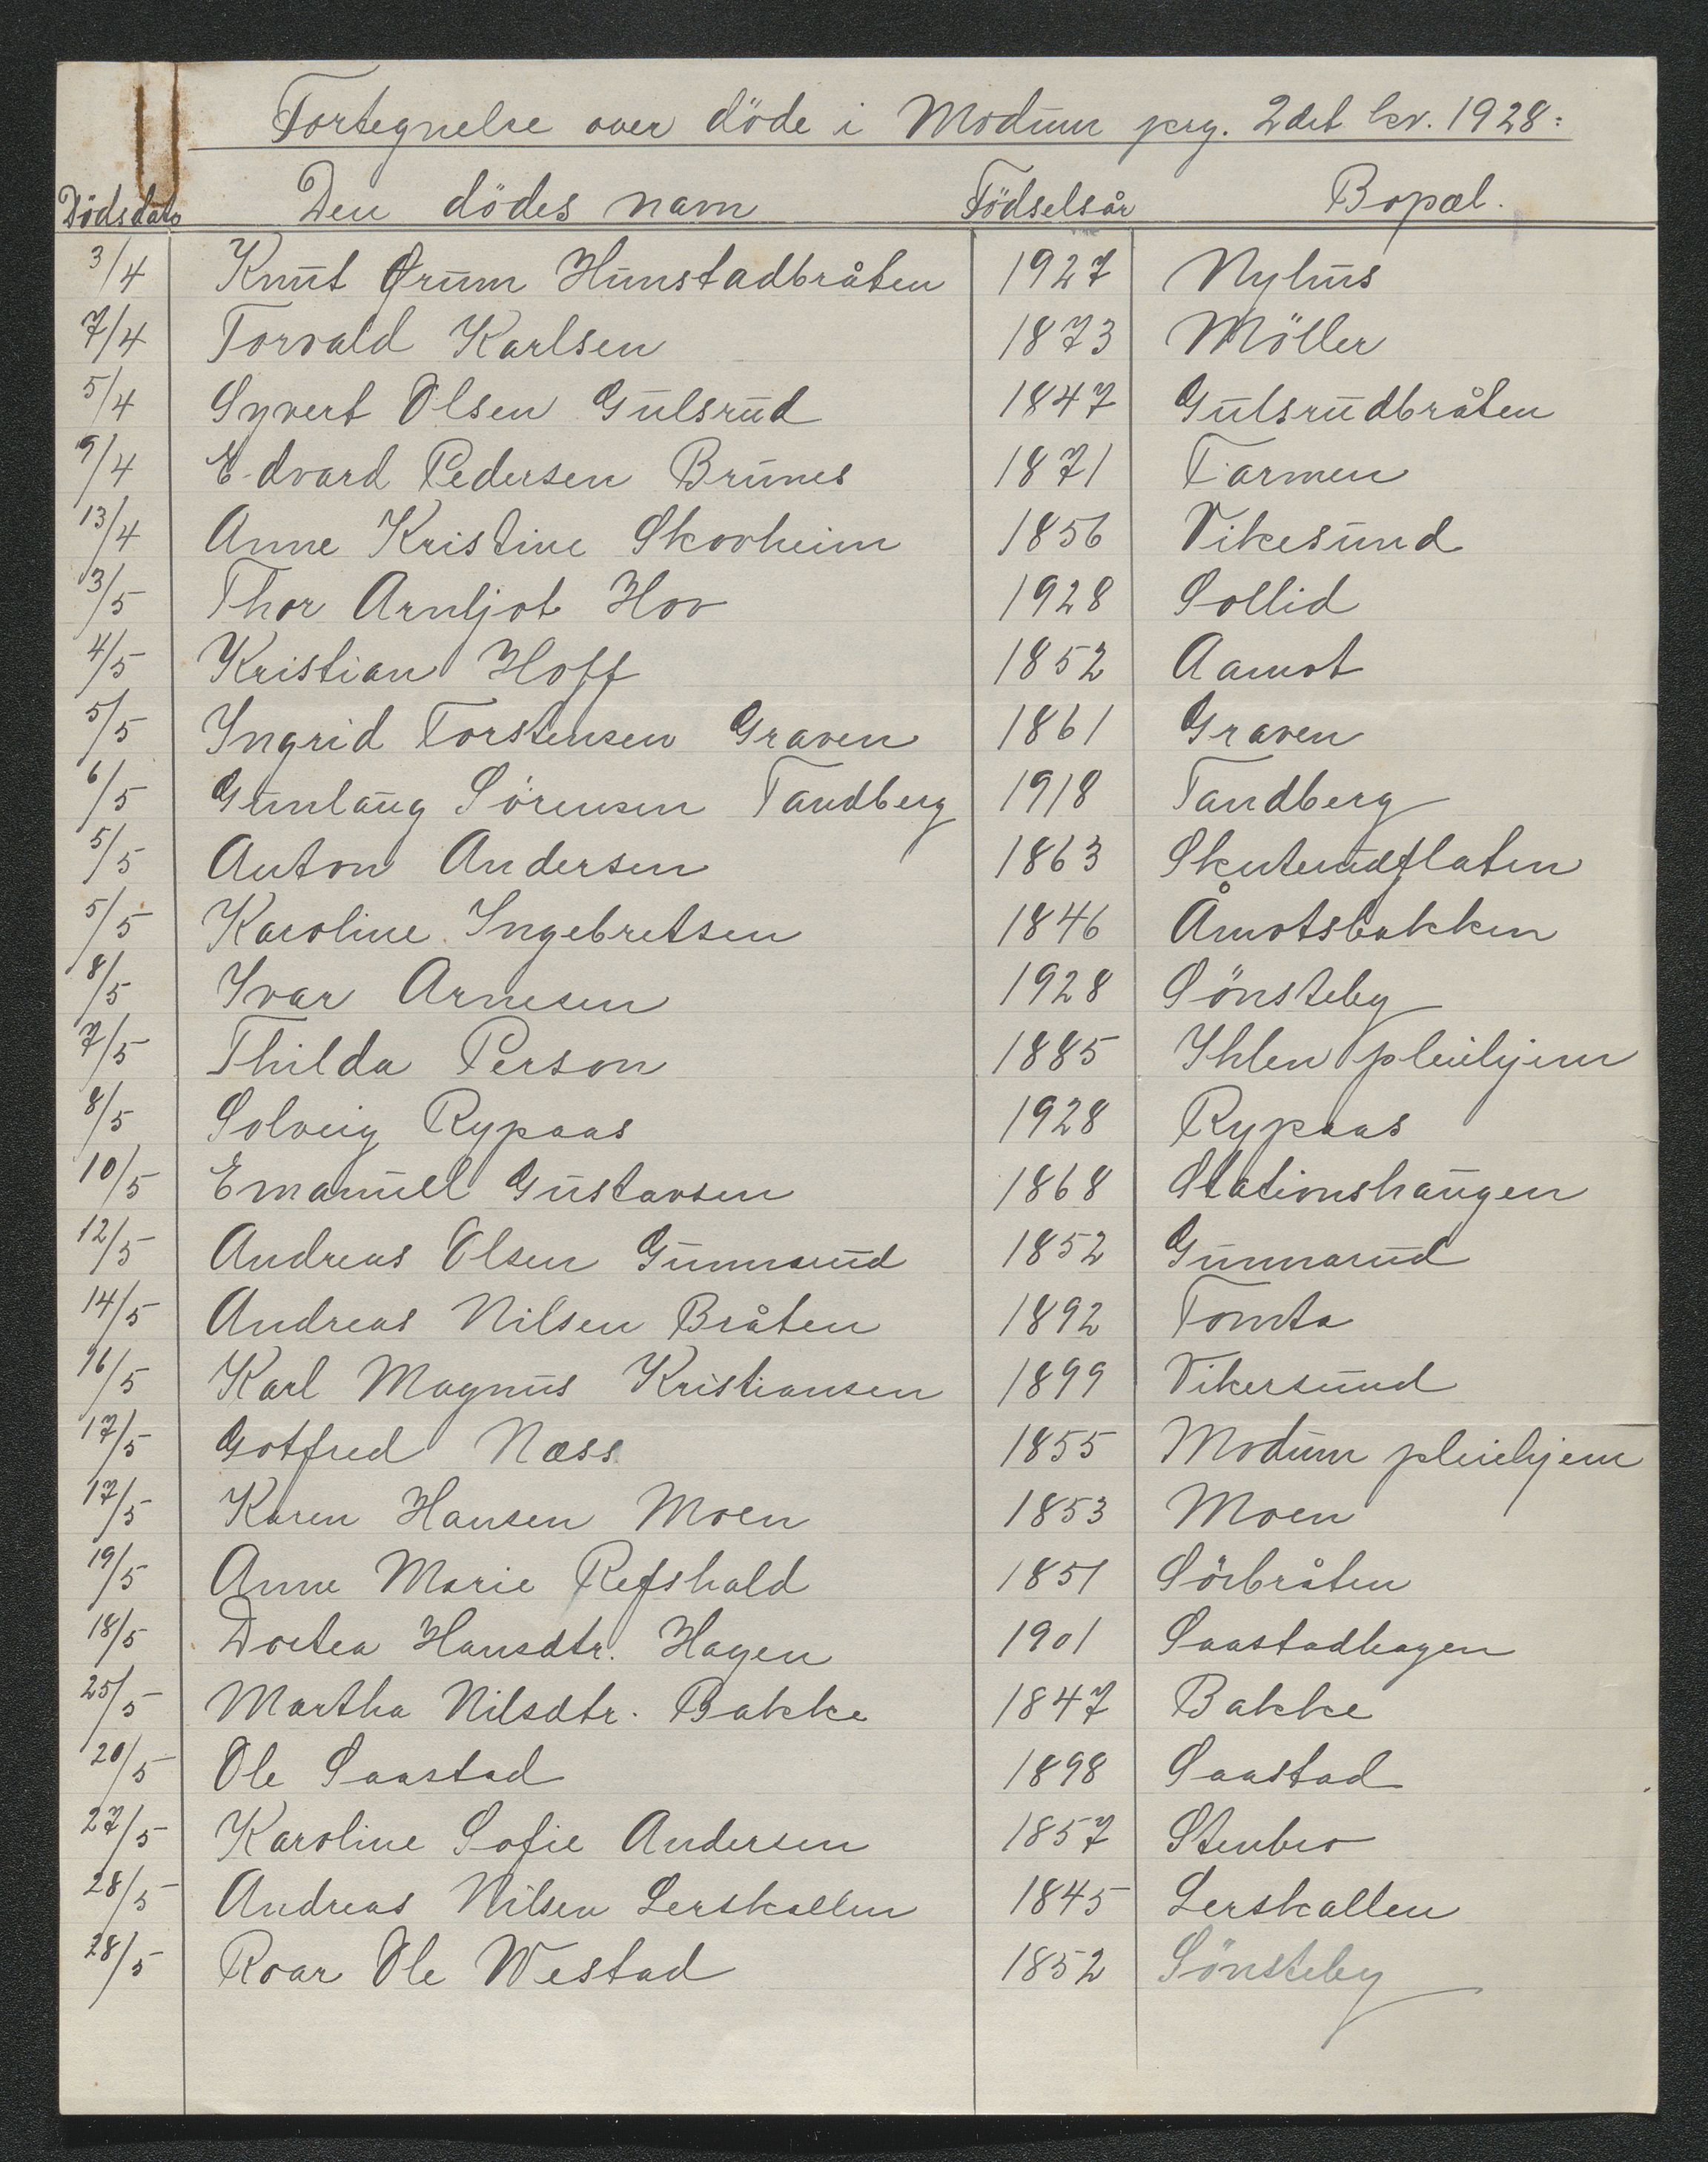 Fortegnelse over döde i Modum prg. 2det kv. 1928:
Dödsdato Den dödes navn Födselsår Bopæl.
3/4 Knut Ørum Hunstadbråten 1927 Nyhus
7/4 Torvald Karlsen 1873 Möller
5/4 Syvert Olsen Gulsrud 1847 Gulsrudbråten
9/4 Edvard Pedersen Brunes 1871 Tarmen
13/4 Anne Kristine Skovheim 1856 Vikesund
3/5 Thor Arnljot Hov 1928 Sollid
4/5 Kristian Hoff 1852 Aamot
5/5 Ingrid Torstensen Graven 1861 Graven
6/5 Gunlaug Sörensen Tandberg 1918 Tandberg
5/5 Anton Andersen 1863 Skuterudflaten
5/5 Karoline Ingebretsen 1846 Åmotsbakken
8/5 Ivar Arnesen 1928 Sönsteby
7/5 Thilda Person 1885 Ihlen pleiehjem
8/5 Solveig Rypaas 1928 Rypaas
10/5 Emanuell Gustavsen 1868 Stationshaugen
12/5 Andreas Olsen Gunnarud 1852 Gunnarud
14/5 Andreas Nilsen Bråten 1892 Tomta
16/5 Karl Magnus Kristiansen 1899 Vikersund
17/5 Gotfred Næss 1855 Modum pleiehjem
17/5 Karen Hansen Moen 1853 Moen
19/5 Anne Marie Refshald 1851 Sörbråten
18/5 Dortea Hansdtr. Hagen 1901 Saastadhagen
25/5 Martha Nilsdtr. Bakke 1847 Bakke
20/5 Ole Saastad 1898 Saastad
27/5 Karoline Sofie Andersen 1857 Stenbro
28/5 Andreas Nilsen Lerskallen 1845 Lerskallen
28/5 Roar Ole Westad 1852 Sönsteby